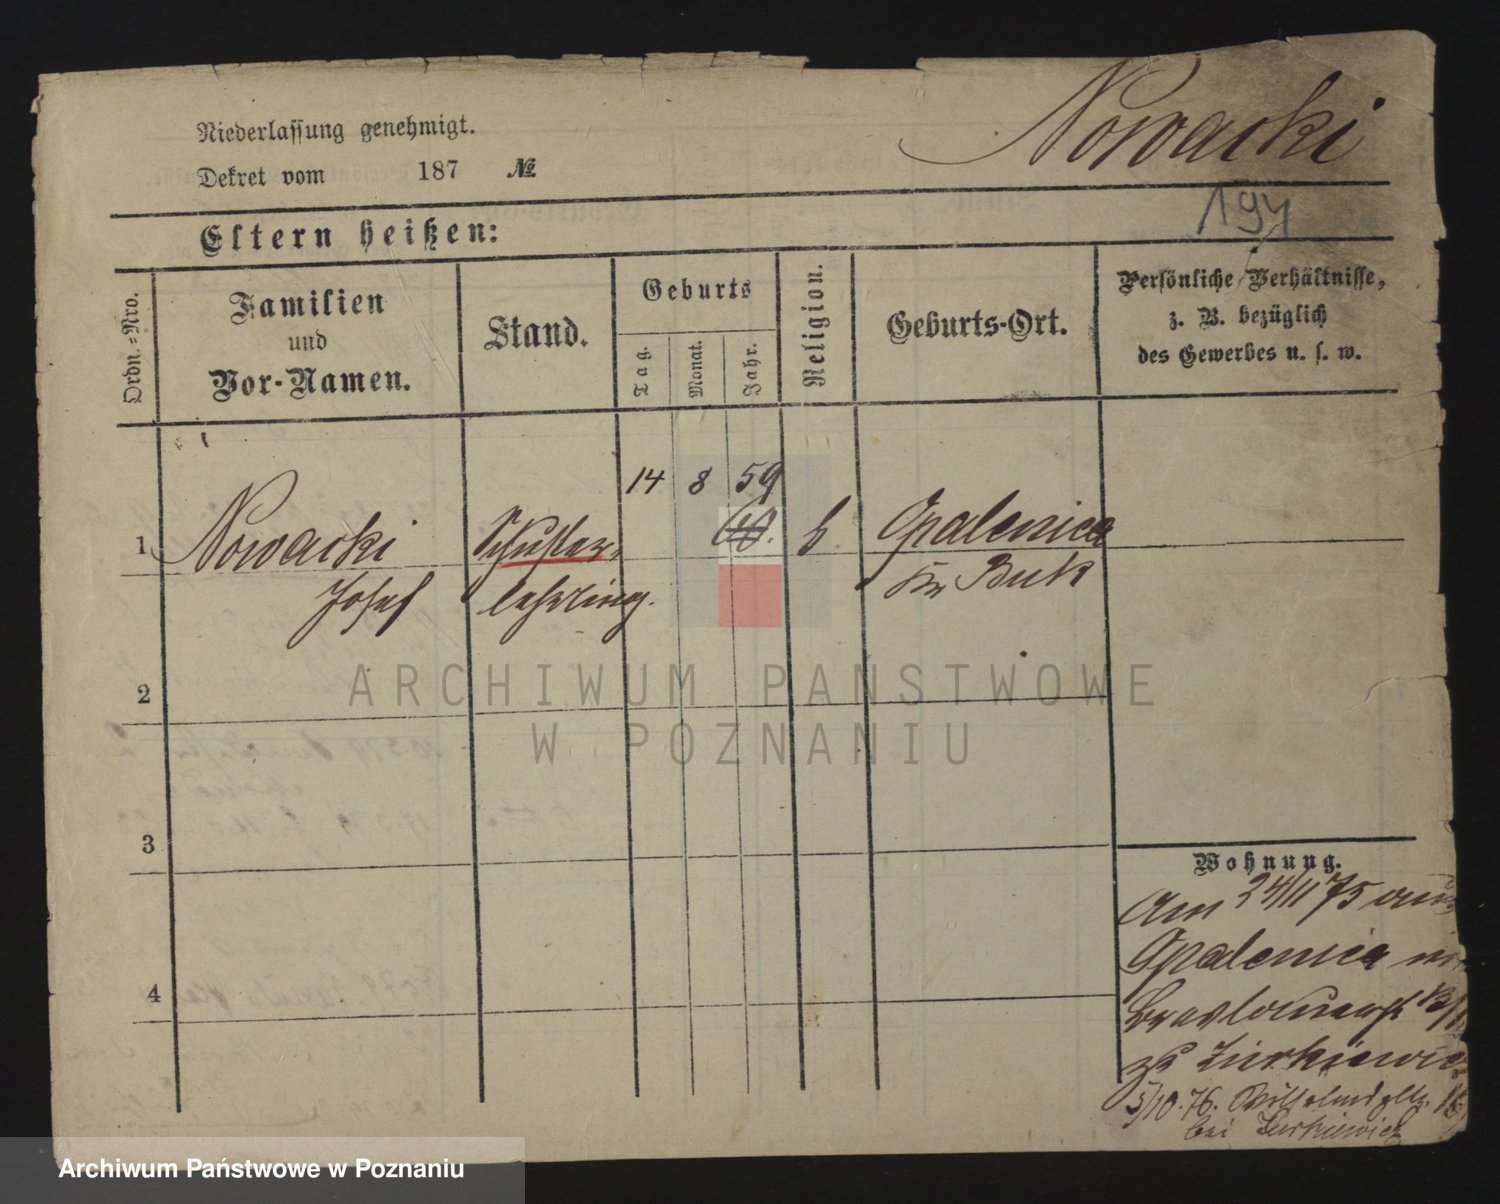 Niederlassung genehmigt.
Dekret vom 187 №
Nowacki
Eltern heißen:
Ordn.-Nro.
Familien
und
Vor-Namen.
Stand.
Geburts
Tag.
Monat.
Jahr.
Religion.
Geburts-Ort.
Persönliche Verhältnisse,
z. B. bezüglich
des Gewerbes u. s. w.
14 8 59
1 Nowacki Schuster, 60. k Opalenica
Josef lehrling. Kr Buk
2
3
4
Wohnung.
Am 24/11 75 aus
Opalenica
Breslauerst
zu Zurkiewicz
5/10.76. Wilhelmspltz. 16
bei Zurkiewicz
ARCHIWUM PAŃSTWOWE
W POZNANIU
Archiwum Państwowe w Poznaniu